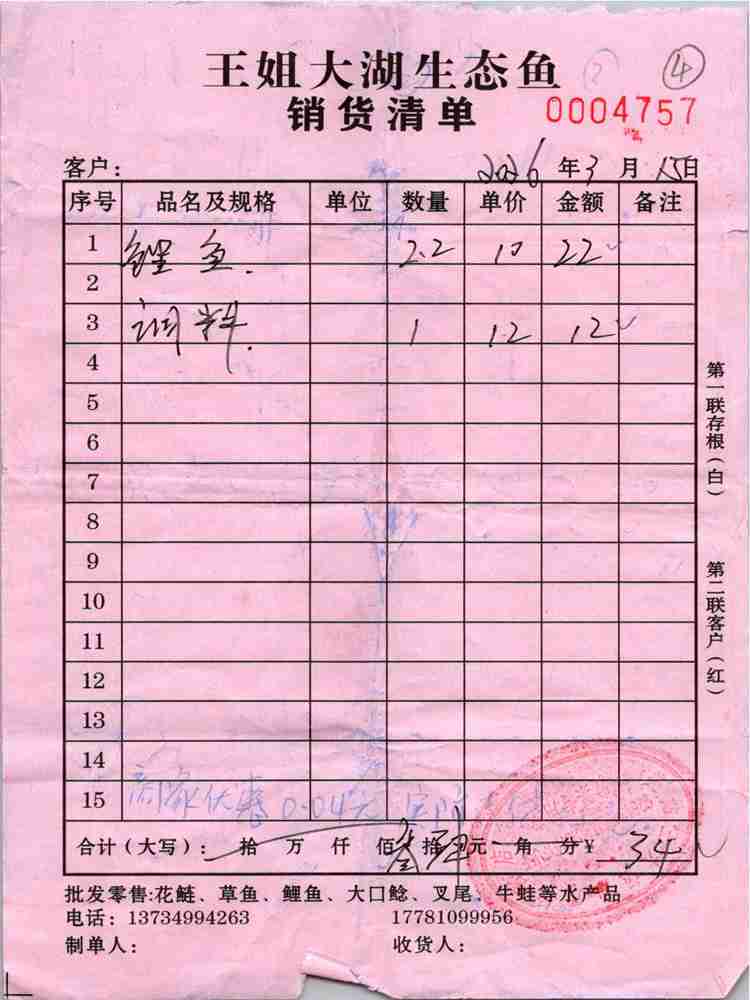 王姐大湖生态鱼
④
销货清单 0004757
客户： 2026年3月15日
序号 品名及规格 单位 数量 单价 金额 备注
1 鲤鱼. 2.2 10 22
2
3 调料. 1 12 12
4
5
6
7
8
9
10
11
12
13
14
15 商家优惠0.04元
合计（大写）： 拾 万 仟 佰叁拾肆元 角 分￥ 34
批发零售:花鲢、草鱼、鲤鱼、大口鲶、叉尾、牛蛙等水产品
电话：13734994263 17781099956
制单人： 收货人：
第一联存根（白）
第二联客户（红）